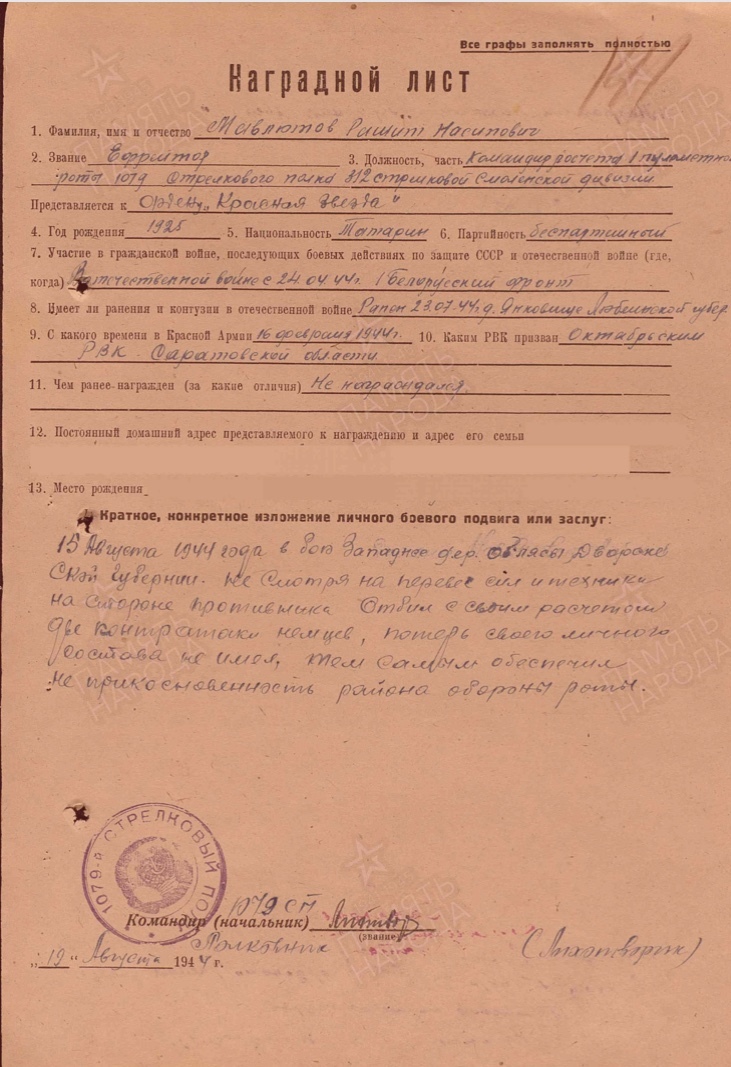 Все графы заполнять полностью
Наградной лист
1. Фамилия, имя и отчество Мавлютов Рашит Насипович
2. Звание Ефрейтор 3. Должность, часть Командир расчета 1 пулеметной
роты 1079 Стрелкового полка 312 стрелковой Смоленской дивизии
Представляется к Ордену "Красная Звезда"
4. Год рождения 1925 5. Национальность Татарин 6. Партийность беспартийный
7. Участие в гражданской войне, последующих боевых действиях по защите СССР и отечественной войне (где,
когда) В отечественной войне с 24.04.44г. 1 Белорусский фронт
8. Имеет ли ранения и контузии в отечественной войне Ранен 23.07.44г. д. Янковице Люблинской губер
9. С какого времени в Красной Армии 16 февраля 1944г. 10. Каким РВК призван Октябрьским
РВК Саратовской области
11. Чем ранее награжден (за какие отличия) Не награждался
12. Постоянный домашний адрес представляемого к награждению и адрес его семьи
13. Место рождения
1. Краткое, конкретное изложение личного боевого подвига или заслуг:
15 Августа 1944 года в бою Западнее дер.
Губернии. Не смотря на перевес сил и техники
на стороне противника Отбил с своим расчетом
две контратаки немцев, потерь своего личного
состава не имея, тем самым обеспечил
не прикосновенность района обороны роты.
1079-й СТРЕЛКОВЫЙ ПО
1079 СП
Командир (начальник)
(звание)
Полковник
„19" Августа 1944 г.
ПАМЯТЬ НАРОДА